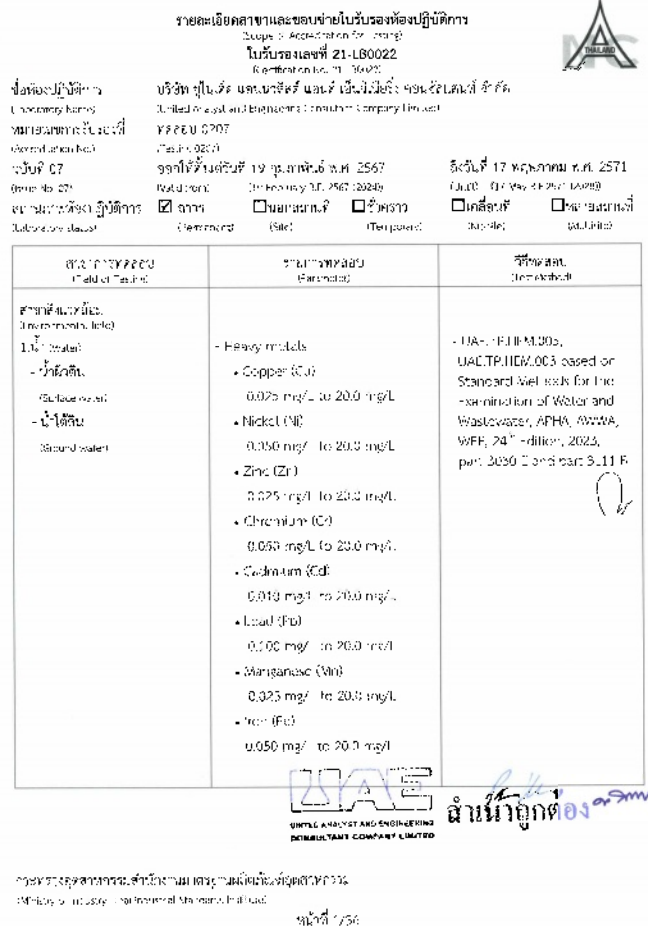 รายละเอียดสาขาและขอบข่ายใบรับรองห้องปฏิบัติการ
(Scope of Accreditation for Testing)
ใบรับรองเลขที่ 21-LB0022
(Certification No. 21-LB0022)
THAILAND
ชื่อห้องปฏิบัติการ บริษัท ยูไนเต็ด แอนนาลิสต์ แอนด์ เอ็นจิเนียริ่ง คอนซัลแตนท์ จำกัด
(Laboratory Name) (United Analyst and Engineering Consultant Company Limited)
หมายเลขการรับรองที่ ทดสอบ 0207
(Accreditation No.) (Testing 0207)
ฉบับที่ 07 ออกให้ตั้งแต่วันที่ 19 กุมภาพันธ์ พ.ศ. 2567 ถึงวันที่ 17 พฤษภาคม พ.ศ. 2571
(Issue No. 07) (Valid from) (February B.E. 2567 (2024)) (Until) (17 May B.E. 2571 (2028))
สถานภาพห้องปฏิบัติการ ☑ ถาวร ☐นอกสถานที่ ☐ชั่วคราว ☐เคลื่อนที่ ☐หลายสถานที่
(Laboratory status) (Permanent) (Site) (Temporary) (Mobile) (Multisite)
สาขาการทดสอบ รายการทดสอบ วิธีทดสอบ
(Field of Testing) (Parameter) (Test Method)
สาขาสิ่งแวดล้อม
(Environmental field)
1.น้ำ (water)
- น้ำผิวดิน
(Surface water)
- น้ำใต้ดิน
(Ground water)
- Heavy metals
• Copper (Cu)
0.025 mg/L to 20.0 mg/L
• Nickel (Ni)
0.050 mg/L to 20.0 mg/L
• Zinc (Zn)
0.025 mg/L to 20.0 mg/L
• Chromium (Cr)
0.050 mg/L to 20.0 mg/L
• Cadmium (Cd)
0.010 mg/L to 20.0 mg/L
• Lead (Pb)
0.100 mg/L to 20.0 mg/L
• Manganese (Mn)
0.025 mg/L to 20.0 mg/L
• Iron (Fe)
0.050 mg/L to 20.0 mg/L
- UAE.TP.HEM.003,
UAE.TP.HEM.003 based on
Standard Methods for the
Examination of Water and
Wastewater, APHA, AWWA,
WEF, 24th Edition, 2023,
part 3030 E and part 3111 B
UAE
UNITED ANALYST AND ENGINEERING
CONSULTANT COMPANY LIMITED
สำเนาถูกต้อง
กระทรวงอุตสาหกรรม สำนักงานมาตรฐานผลิตภัณฑ์อุตสาหกรรม
(Ministry of Industry, Thai Industrial Standards Institute)
หน้าที่ 1/56